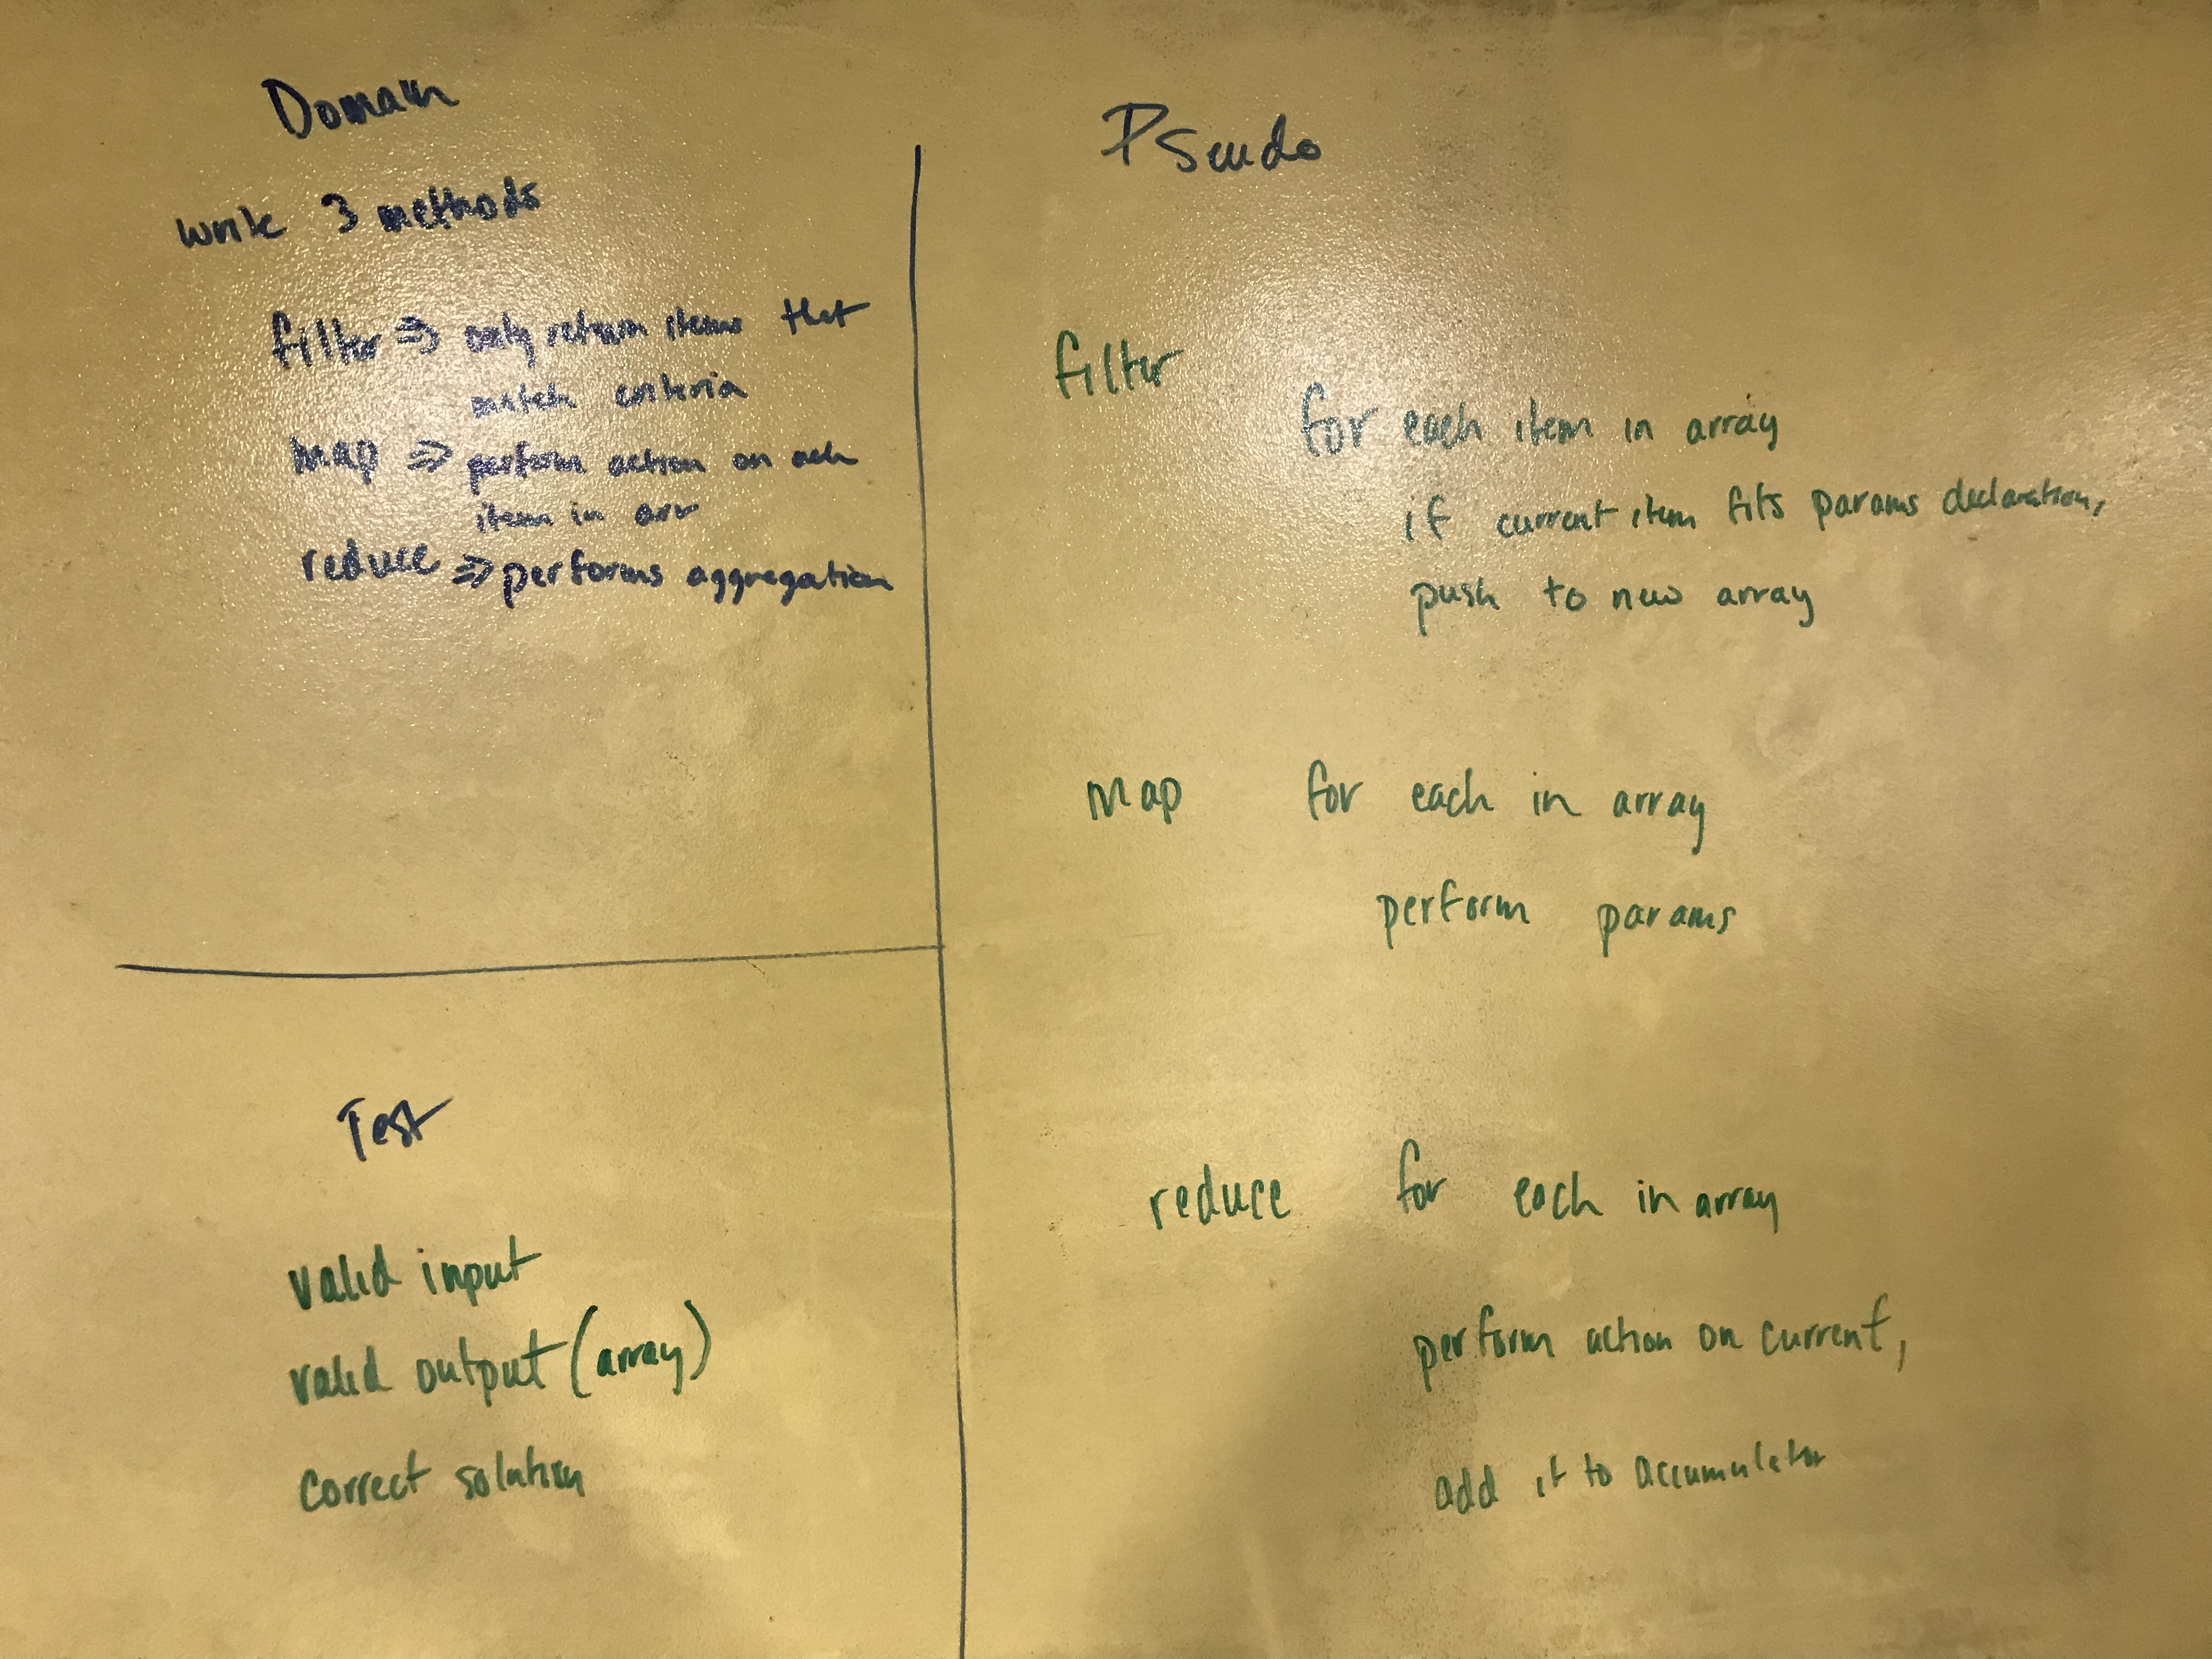 Domain
write 3 methods
filter => only return items that
match criteria
map => perform action on each
item in arr
reduce => performs aggregation
Test
valid input
valid output (array)
correct solution
Pseudo
filter
for each item in array
if current item fits params declaration,
push to new array
map for each in array
perform params
reduce for each in array
perform action on current,
add it to accumulator